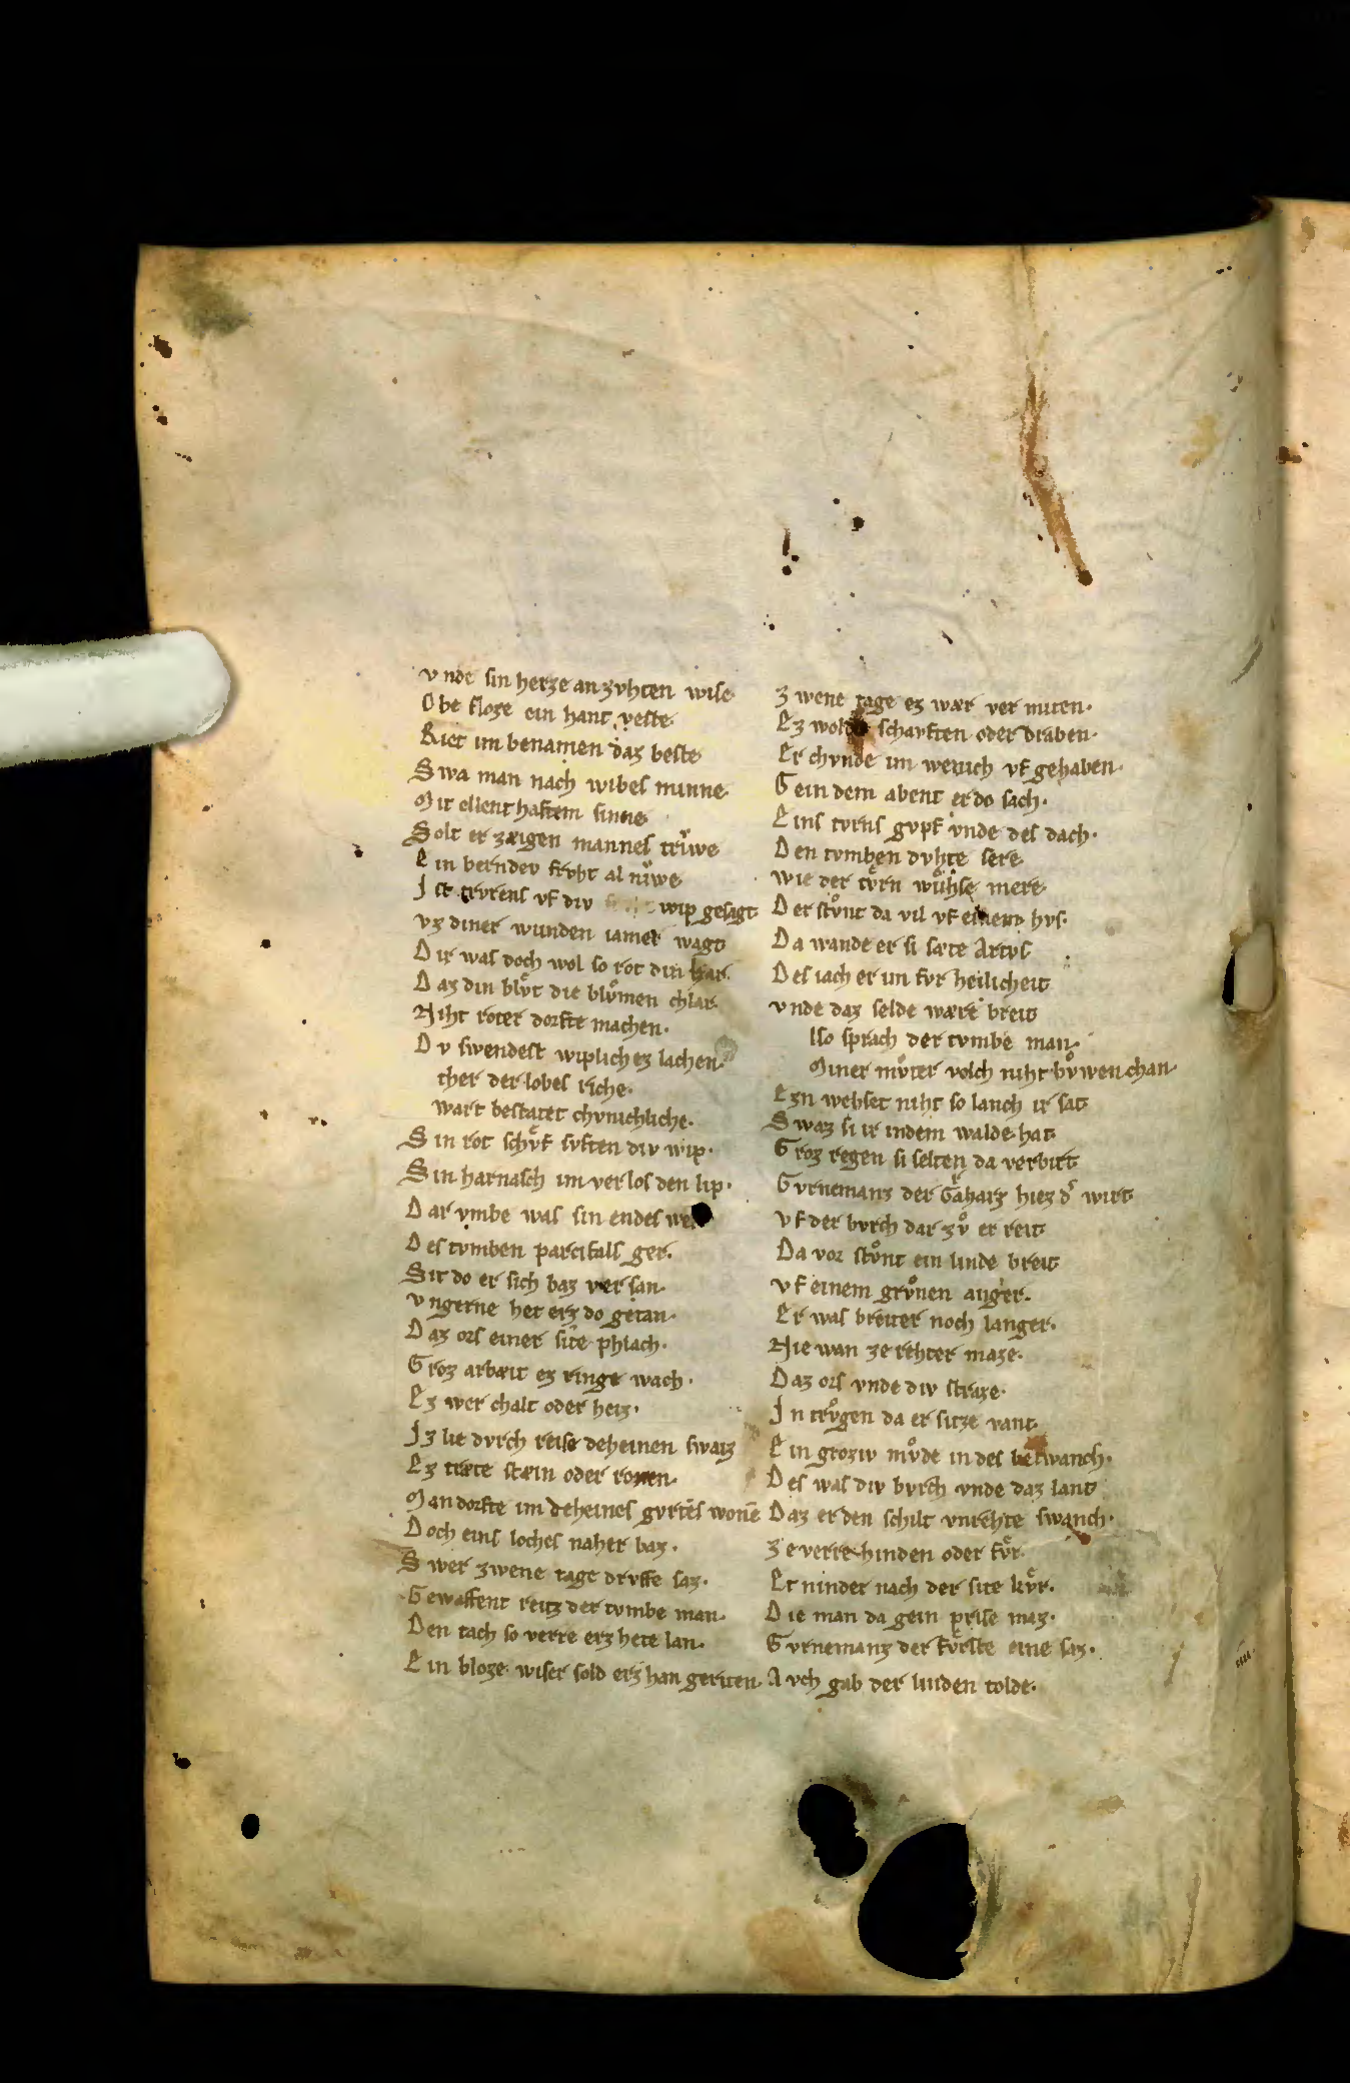 vnde sin herze an zvhten wise
Obe sloze ein hant veste
Riet im benamen daz beste
Swa man nach wibes minne
Mit ellenthaftem sinne
Solt er zæigen mannes trîwe
Ein berndev frvht al nîwe
Ist trvrens vf div wip gesagt
vz diner wunden iamer wagt
Dir was doch wol so rot din har
Daz din blvͦt die blvͦmen chlar
Niht roter dorfte machen·
Dv swendest wiplichez lachen·
ther der lobes riche·
wart bestatet chvnichliche·
Sin rot schvͤf svften div wip·
Sin harnasch im verlos den lip·
Dar vmbe was sin endes
Des tvmben parcifals ger·
Sit do er sich baz versan·
vngerne het erz do getan·
Daz ors einer site phlach·
Groz arbæit ez ringe wach·
Ez wer chalt oder heiz·
Jz lie dvrch reise deheinen swaiz
Ez træte stæin oder ronen·
Man dorfte im deheines gvrtes wonē
Doch eins loches naher baz·
Swer zwene tage drvffe saz·
Gewaffent reitz der tvmbe man·
Den tach so verre erz hete lan·
Ein bloze wiser sold erz han geriten·
Zwene tage ez wær vermiten·
Ez schavften oder draben·
Er chvnde im wenich vf gehaben·
Gein dem abent er do sach·
Eins tvrns gvpf vnde des dach·
Den tvmben dvhte sere
wie der tvͤrn wuͤhse mere
Der stvͦnt da vil vf einem hvs·
Da wande er si sæte Artvs
Des iach er im fvr heilicheit
vnde daz selde wære breit
lso sprach der tvmbe man·
Miner mvͦter volch niht bvͦwen chan·
Ezn wehset niht so lanch ir sat
Swaz si ir indem walde hat
Groz regen si selten da verbirt
Gvrnemanz der Graharz hiez dͬ wirt
vf der bvrch dar zvͦ er reit
Da vor stvͦnt ein linde breit
vf einem grvͦnen anger·
Er was breiter noch langer·
Nie wan ze rehter maze·
Daz ors vnde div straze·
Jn trvͦgen da er sitze vant
Ein groziv mvͦde in des betwanch·
Des was div bvrch vnde daz lant
Daz er den schilt vnrehte swanch·
Ze verre hinden oder fvͤr
Er ninder nach der site kvͤr·
Die man da gein prise maz·
Gvrnemanz der fvͤrste eine saz·
Avch gab der linden tolde·